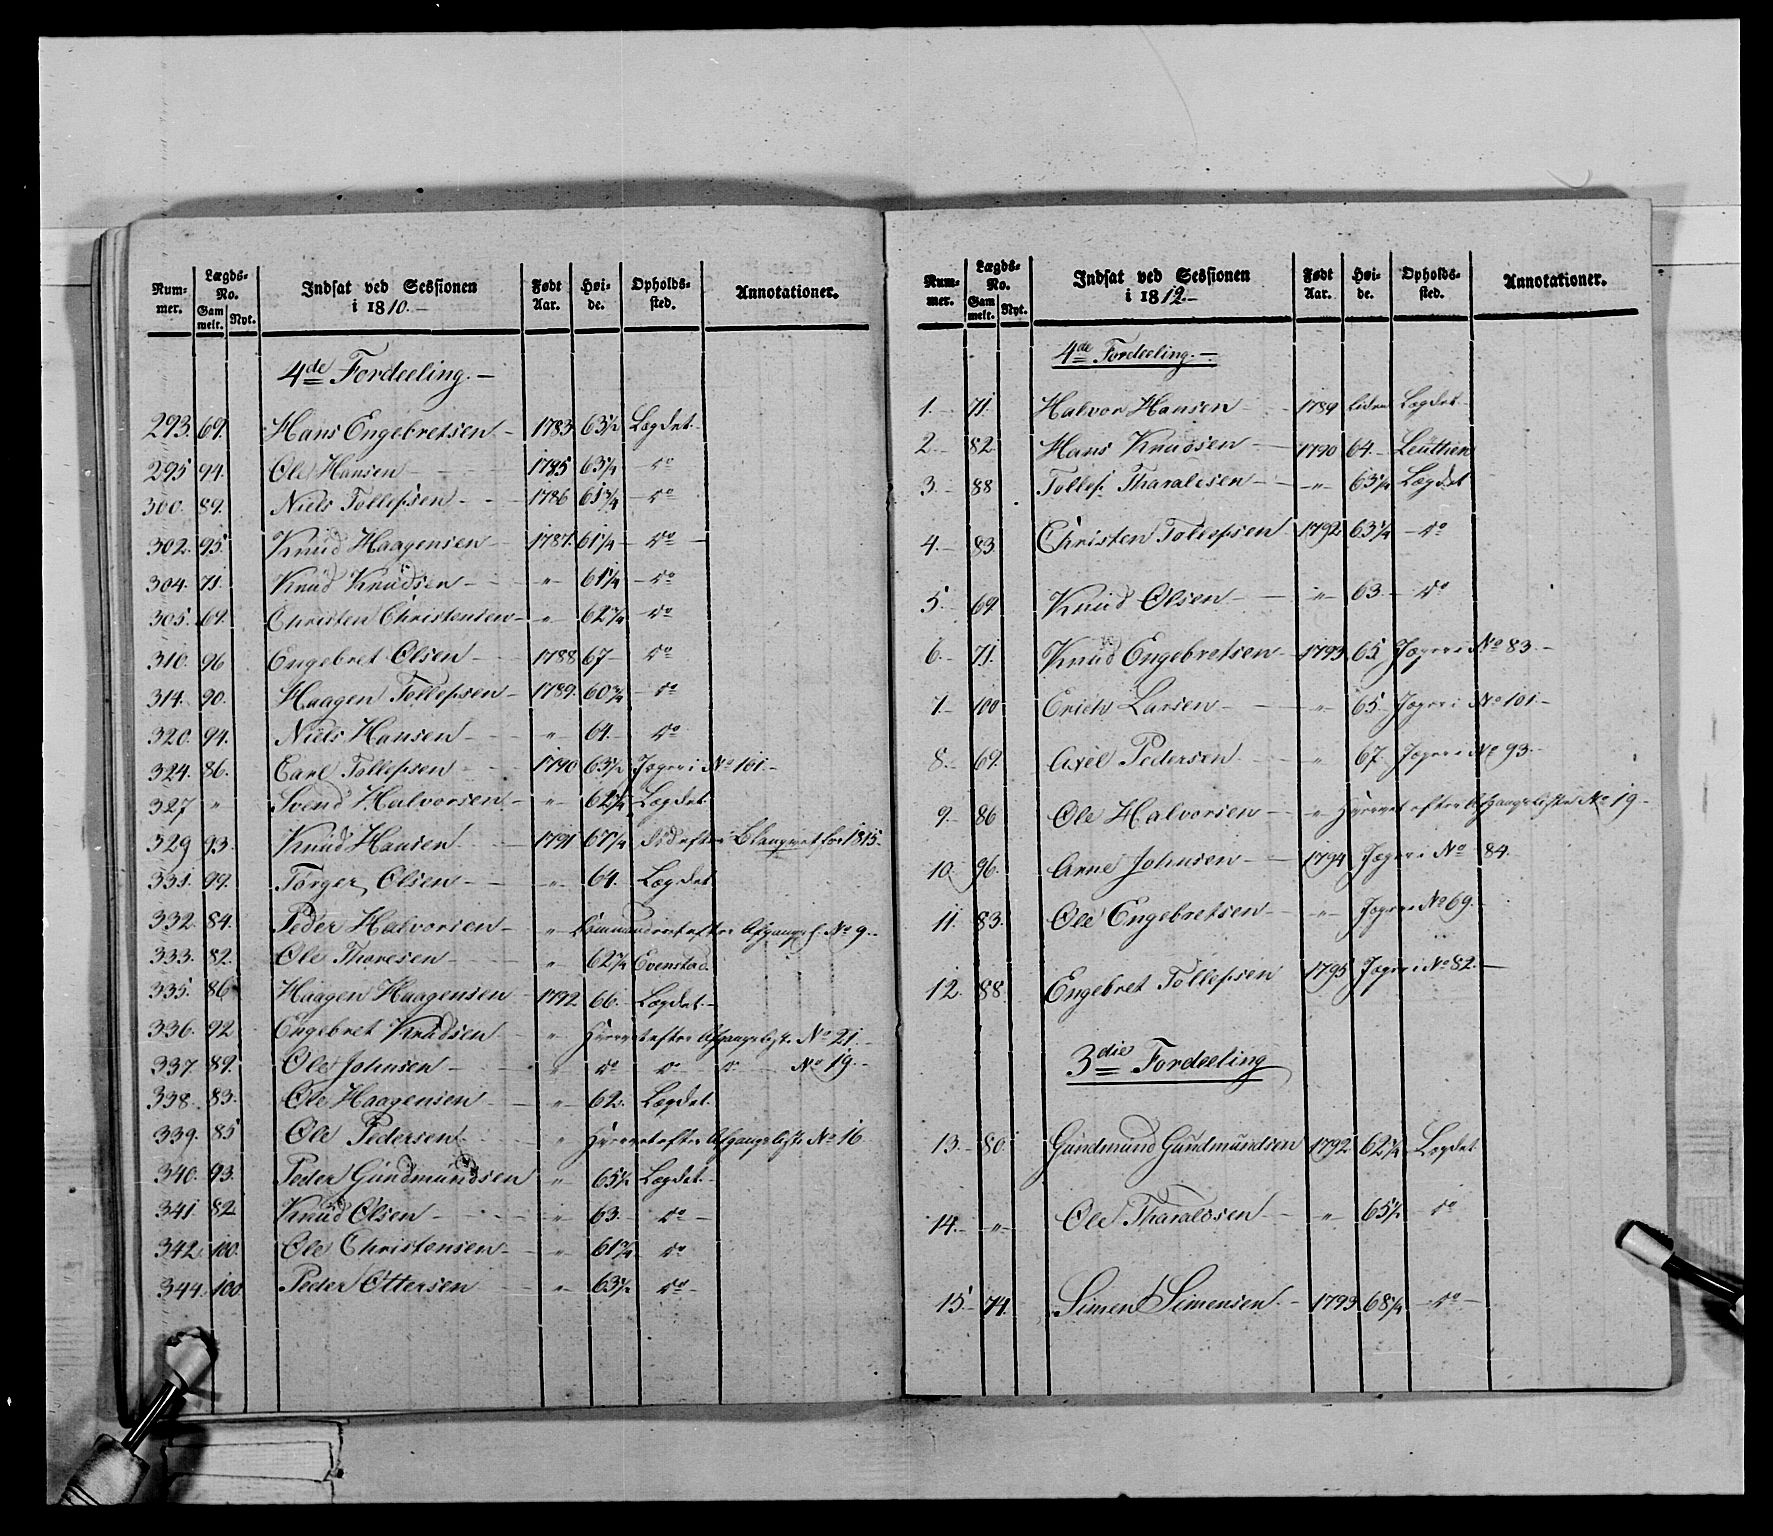 Num-mer. Lægds-No. Gam melt. Nyt. Indsat ved Sessionen i 1810.- Født Aar. Høi-de. Opholds-sted. Annotationer.
4de Fordeeling.-
293. 69. Hans Engebretsen 1783 63½ Lægdet.
295 94. Ole Hansen 1785 63¼ do
300. 89. Niels Tollefsen 1786 61¾ do
302. 95. Knud Haagensen 1787. 61¼ do
304. 71. Knud Knudsen " 61¼ do
305. 69. Christen Christensen " 62¾ do
310. 96 Engebret Olsen 1788 67 do
314. 90. Haagen Tollefsen 1789. 60¾ do
320. 94. Niels Hansen " 64. do
324. 86. Carl Tollefsen 1790 63½ Jæger i No 101.
327 " Svend Halvorsen " 62¾ Lægdet
329 93. Knud Hansen 1791 67¼ for 1815.
331. 99. Torger Olsen " 64. Lægdet
332. 84. Peder Halvorsen " Commanderet efter Afgangsl. No 9.
333. 82. Ole Thoresen " 62¾ Evenstad
335. 86 Haagen Haagensen 1792 66. Lægdet.
336. 92 Engebret Knudsen " Hværvet efter Afgangsliste No 21.
337. 89. Ole Johnsen " do do do No 19.
338. 83. Ole Haagensen " 62. Lægdet.
339. 85 Ole Pedersen " Hværvet efter Afgangsliste No 16
340. 93. Peder Gundmundsen " 65½ Lægdet.
341. 82 Knud Olsen " 63. do
342. 100. Ole Christensen " 61¾ do
344. 100 Peder Ottersen " 63½ do
Num-mer. Lægds-No. Gam melt. Nyt. Indsat ved Sessionen i 1812.- Født Aar. Høi-de. Opholds-sted. Annotationer.
4de Fordeeling.-
1. 71. Halvor Hansen 1789 Liden Lægdet
2. 82 Hans Knudsen 1790 64. Leuthen
3. 88 Tollef Tharaldsen " 63¼ Lægdet
4. 83 Christen Tollefsen 1792 63¼ do
5. 69 Knud Olsen " 63. do
6. 71. Knud Engebretsen 1793 65 Jæger i No 83.
7. 100 Erich Larsen " 65 Jæger i No 101.
8. 69. Axel Pedersen " 67 Jæger i No 93.
9. 86 Ole Halvorsen " Hværvet efter Afgangsliste No 19.
10. 96. Arne Johnsen 1794 Jæger i No 84.
11. 83. Ole Engebretsen " Jæger i No 69.
12. 88. Engebret Tollefsen 1795 Jæger i No 82.
3die Fordeeling
13. 80. Gundmund Gundmundsen 1792 62¾ Lægdet
14. " Ole Tharaldsen " 65½ do
15. 74. Simen Simensen. 1793 68¼ do